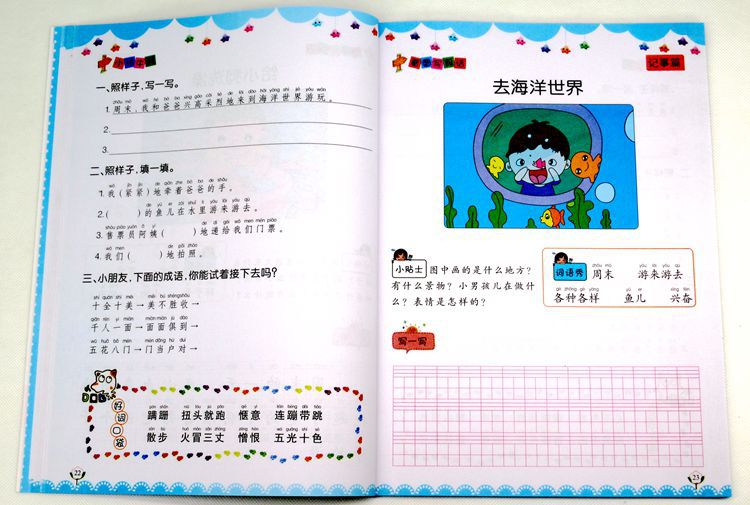 一、照样子,写一写。
1. 周末,我和爸爸兴高采烈地来到海洋世界游玩。
2.
3.
二、照样子,填一填。
1. 我(紧紧)地牵着爸爸的手。
2. ( )的鱼儿在水里游来游去。
3. 售票员阿姨( )地递给我们门票。
4. 我们( )地拍照。
三、小朋友,下面的成语,你能试着接下去吗?
十全十美→美不胜收→
千人一面→面面俱到→
五花八门→门当户对→
好词口袋
蹒跚 扭头就跑 惬意 连蹦带跳
散步 火冒三丈 憎恨 五光十色
22
记事篇
去海洋世界
小贴士 图中画的是什么地方?
有什么景物?小男孩儿在做什
么?表情是怎样的?
词语秀 周末 游来游去
各种各样 鱼儿 兴奋
写一写
23